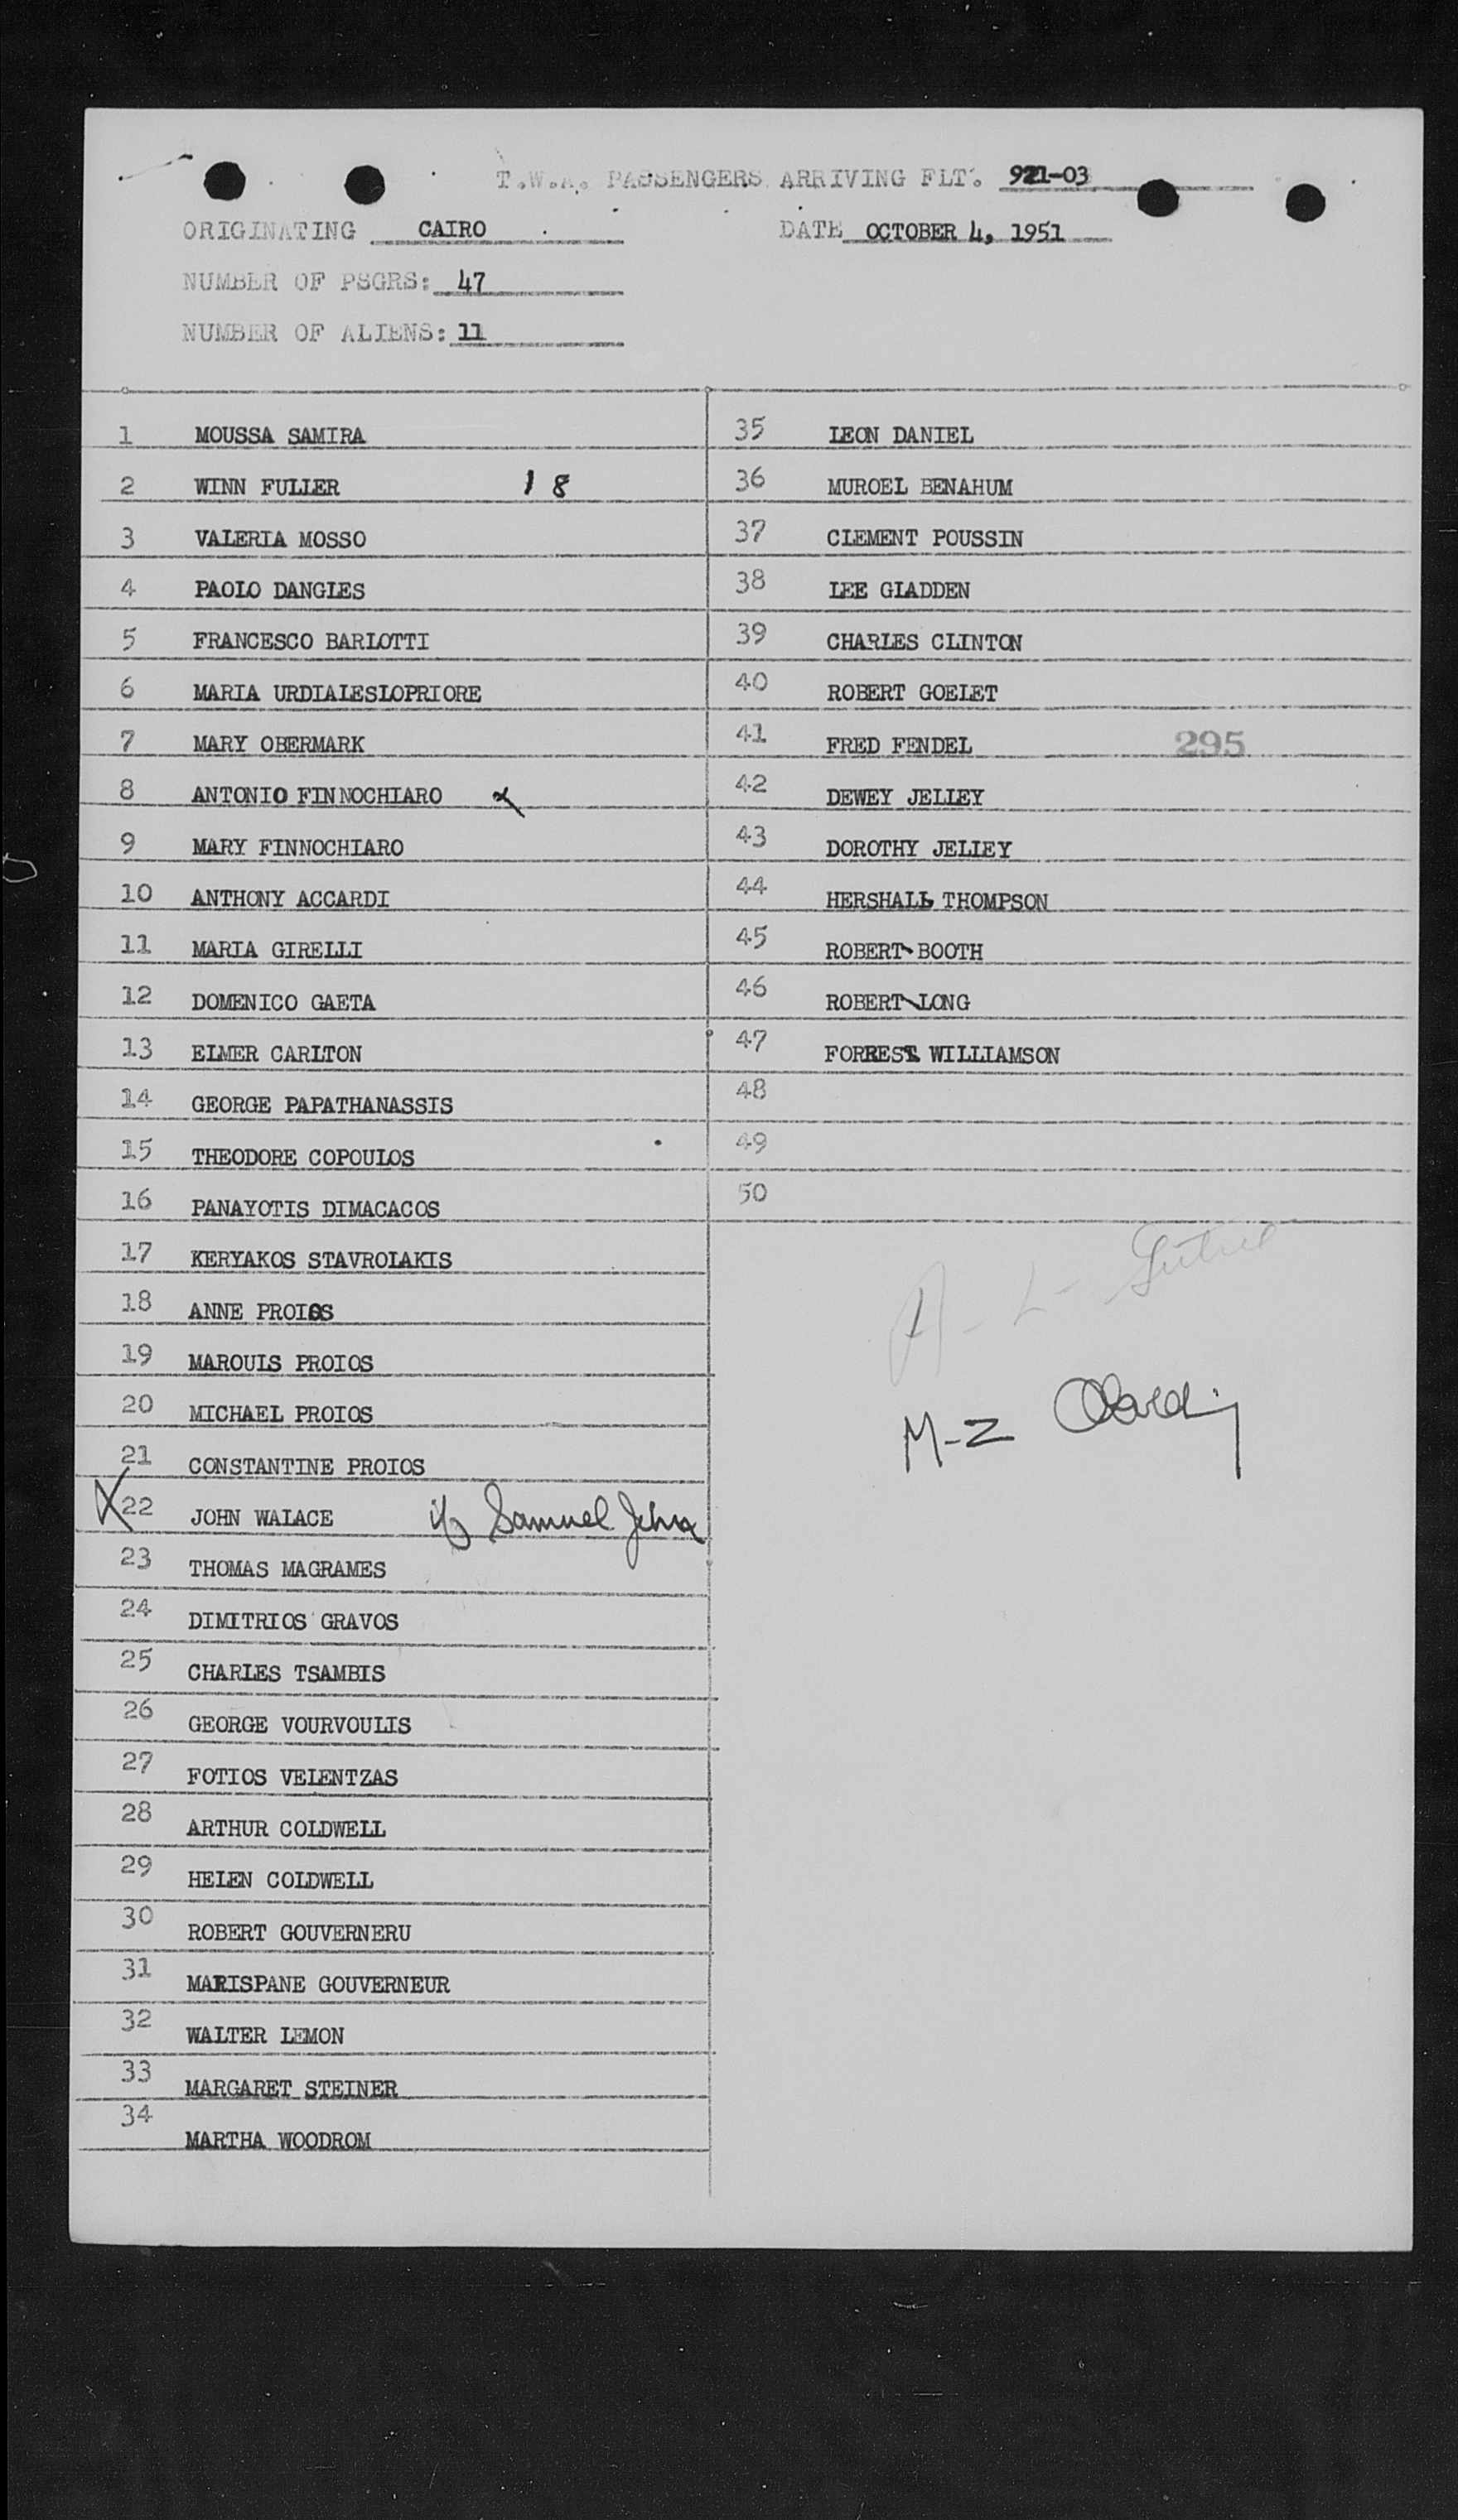 T.W.A. PASSENGERS ARRIVING FLT. 921-03
ORIGINATING CAIRO DATE OCTOBER 4, 1951
NUMBER OF PSGRS: 47
NUMBER OF ALIENS: 11
1 MOUSSA SAMIRA
2 WINN FULLER 18
3 VALERIA MOSSO
4 PAOLO DANGLES
5 FRANCESCO BARLOTTI
6 MARIA URDIALESLOPRIORE
7 MARY OBERMARK
8 ANTONIO FINNOCHIARO
9 MARY FINNOCHIARO
10 ANTHONY ACCARDI
11 MARIA GIRELLI
12 DOMENICO GAETA
13 ELMER CARLTON
14 GEORGE PAPATHANASSIS
15 THEODORE COPOULOS
16 PANAYOTIS DIMACACOS
17 KERYAKOS STAVROLAKIS
18 ANNE PROIOS
19 MAROUIS PROIOS
20 MICHAEL PROIOS
21 CONSTANTINE PROIOS
X 22 JOHN WALACE Samuel John
23 THOMAS MAGRAMES
24 DIMITRIOS GRAVOS
25 CHARLES TSAMBIS
26 GEORGE VOURVOULIS
27 FOTIOS VELENTZAS
28 ARTHUR COLDWELL
29 HELEN COLDWELL
30 ROBERT GOUVERNERU
31 MARISPANE GOUVERNEUR
32 WALTER LEMON
33 MARGARET STEINER
34 MARTHA WOODROM
35 LEON DANIEL
36 MUROEL BENAHUM
37 CLEMENT POUSSIN
38 LEE GLADDEN
39 CHARLES CLINTON
40 ROBERT GOELET
41 FRED FENDEL 295
42 DEWEY JELLEY
43 DOROTHY JELLEY
44 HERSHALL THOMPSON
45 ROBERT BOOTH
46 ROBERT LONG
47 FORREST WILLIAMSON
48
49
50
A - L -
M-Z